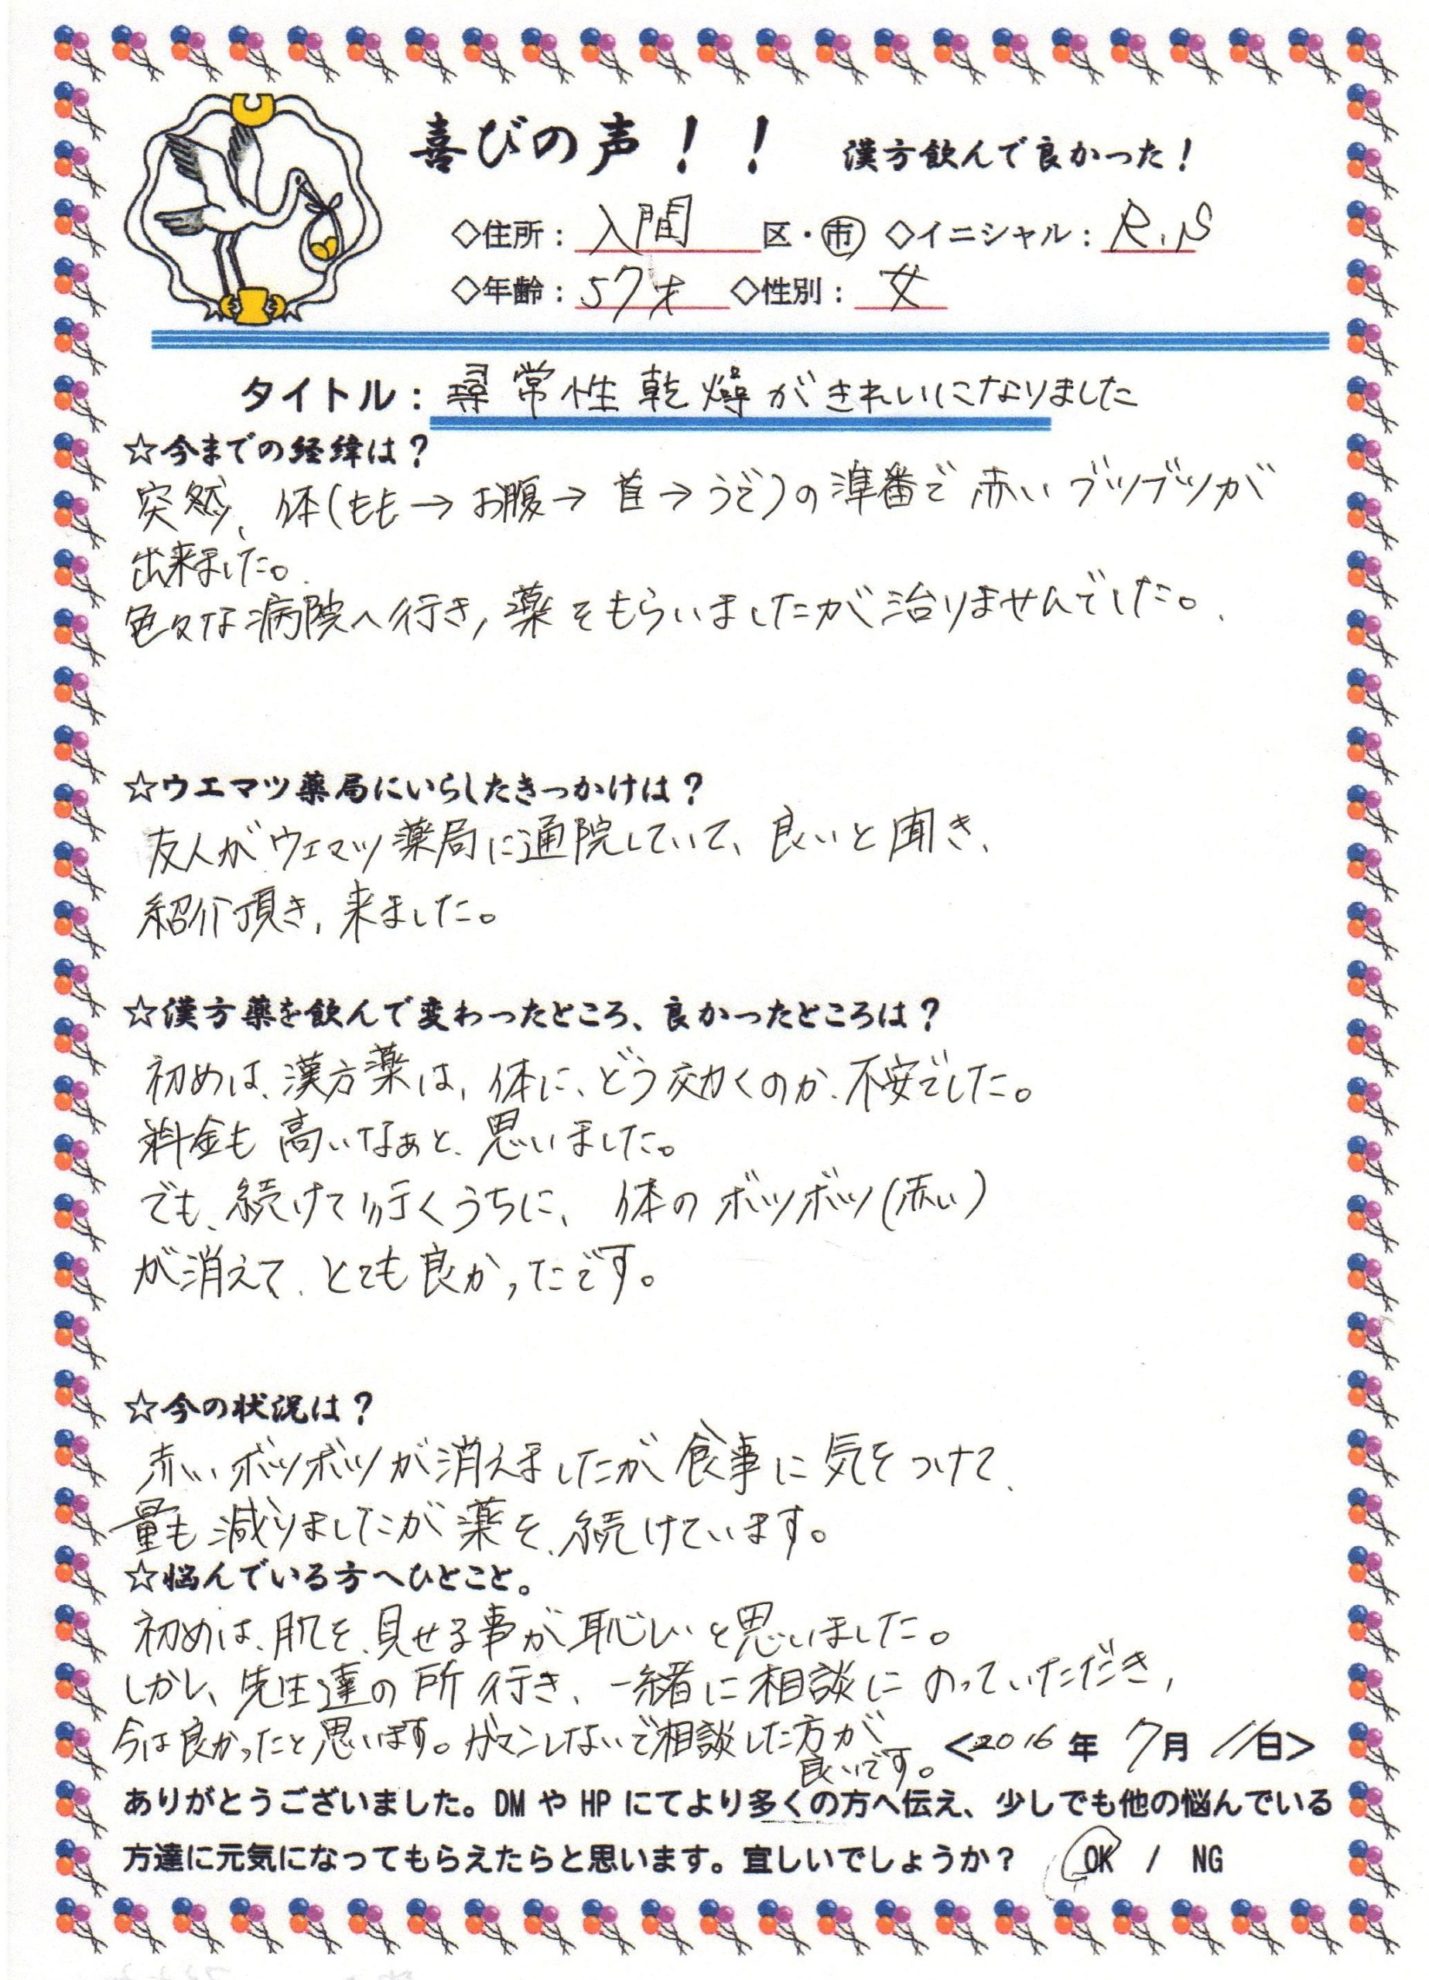 喜びの声！！ 漢方飲んで良かった！
◇住所：入間 区・市 ◇イニシャル：R.N
◇年齢：57才 ◇性別：女
タイトル：尋常性乾燥がきれいになりました
☆今までの経緯は？
突然、体(もも→お腹→首→うで)の準番で赤いブツブツが
出来ました。
色々な病院へ行き,薬をもらいましたが治りませんでした。
☆ウエマツ薬局にいらしたきっかけは？
友人がウエマツ薬局に通院していて、良いと聞き、
紹介頂き,来ました。
☆漢方薬を飲んで変わったところ、良かったところは？
初めは、漢方薬は,体に、どう効くのか、不安でした。
料金も高いなぁと、思いました。
でも、続けて行くうちに、体のボツボツ(赤い)
が消えて、とても良かったです。
☆今の状況は？
赤いボツボツが消えましたが食事に気をつけて、
量も減りましたが薬を、続けています。
☆悩んでいる方へひとこと。
初めは、肌を、見せる事が恥しいと思いました。
しかし、先生達の所行き、一緒に相談にのっていただき,
今は良かったと思います。ガマンしないで相談した方が
良いです。
<2016年 7月 11日>
ありがとうございました。DM や HP にてより多くの方へ伝え、少しでも他の悩んでいる
方達に元気になってもらえたらと思います。宜しいでしょうか？ OK / NG